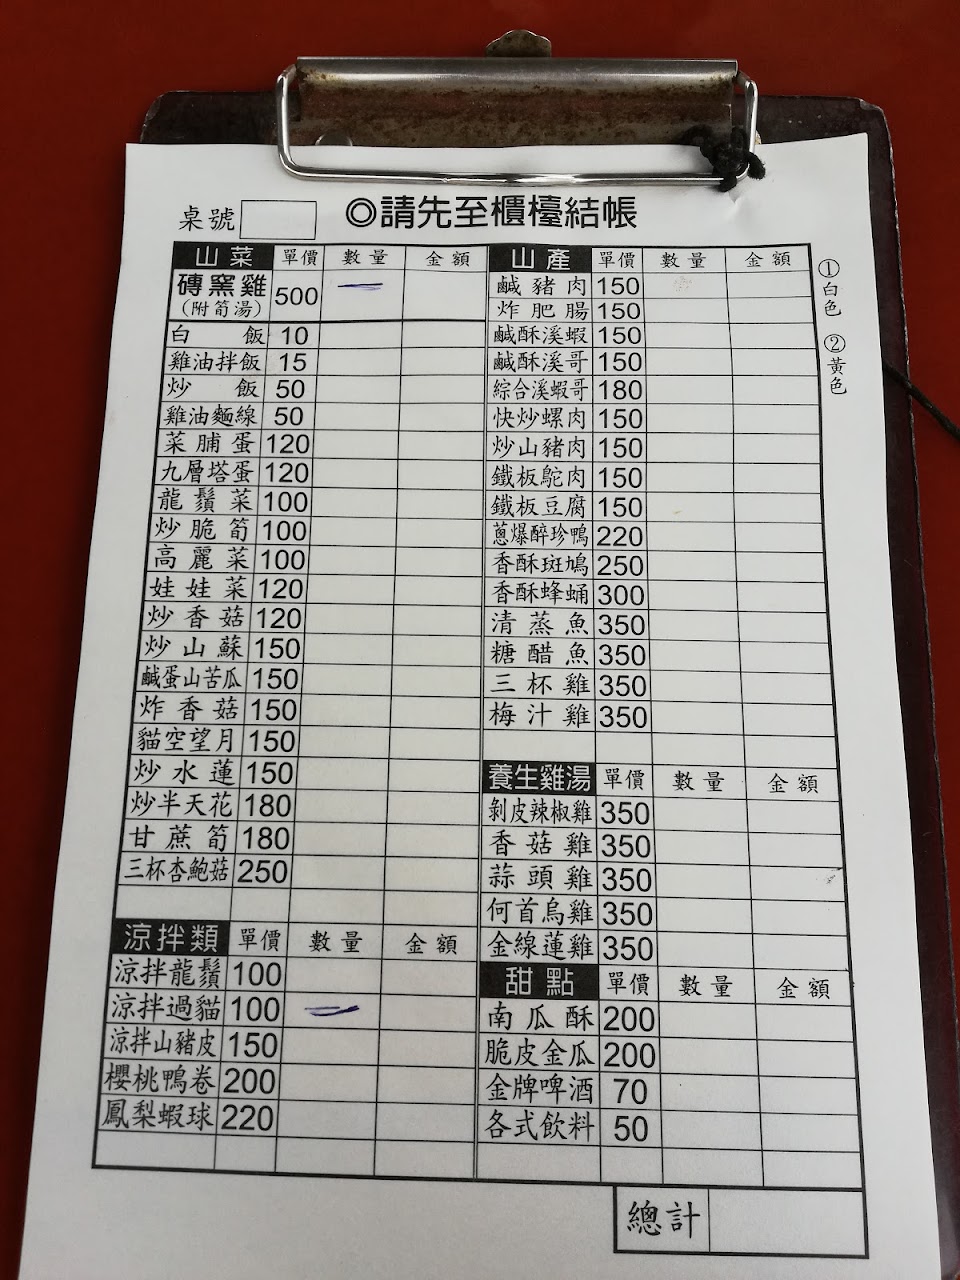 ◎請先至櫃檯結帳
桌號
山菜 單價 數量 金額
磚窯雞 500 一
(附筍湯)
白飯 10
雞油拌飯 15
炒飯 50
雞油麵線 50
菜脯蛋 120
九層塔蛋 120
龍鬚菜 100
炒脆筍 100
高麗菜 100
娃娃菜 120
炒香菇 120
炒山蘇 150
鹹蛋山苦瓜 150
炸香菇 150
貓空望月 150
炒水蓮 150
炒半天花 180
甘蔗筍 180
三杯杏鮑菇 250
涼拌類 單價 數量 金額
涼拌龍鬚 100
涼拌過貓 100
涼拌山豬皮 150
櫻桃鴨卷 200
鳳梨蝦球 220
山產 單價 數量 金額
鹹豬肉 150
炸肥腸 150
鹹酥溪蝦 150
鹹酥溪哥 150
綜合溪蝦哥 180
快炒螺肉 150
炒山豬肉 150
鐵板鴕肉 150
鐵板豆腐 150
蔥爆醉珍鴨 220
香酥斑鳩 250
香酥蜂蛹 300
清蒸魚 350
糖醋魚 350
三杯雞 350
梅汁雞 350
養生雞湯 單價 數量 金額
剝皮辣椒雞 350
香菇雞 350
蒜頭雞 350
何首烏雞 350
金線蓮雞 350
甜點 單價 數量 金額
南瓜酥 200
脆皮金瓜 200
金牌啤酒 70
各式飲料 50
總計
①白色
②黃色